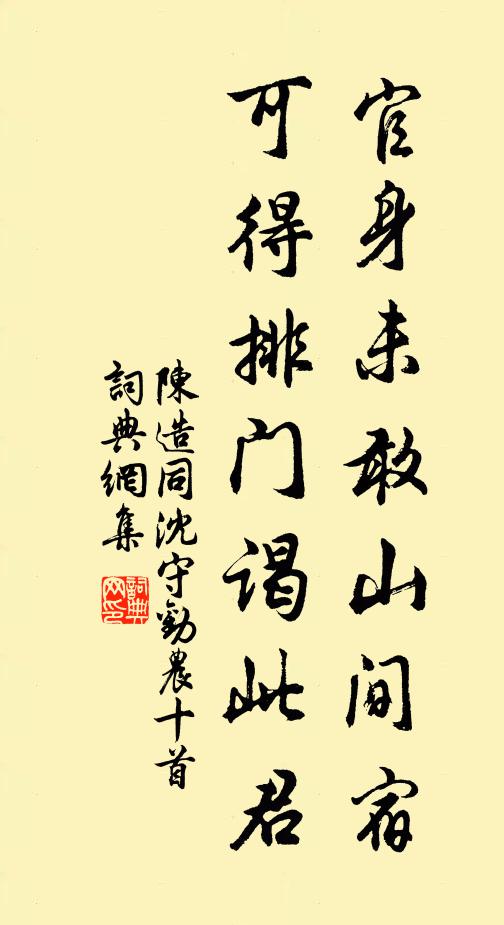 官身未敢山间宿
可得排门谒此君
陳造同沈守勸農十首
詞典網集
詞典
网印